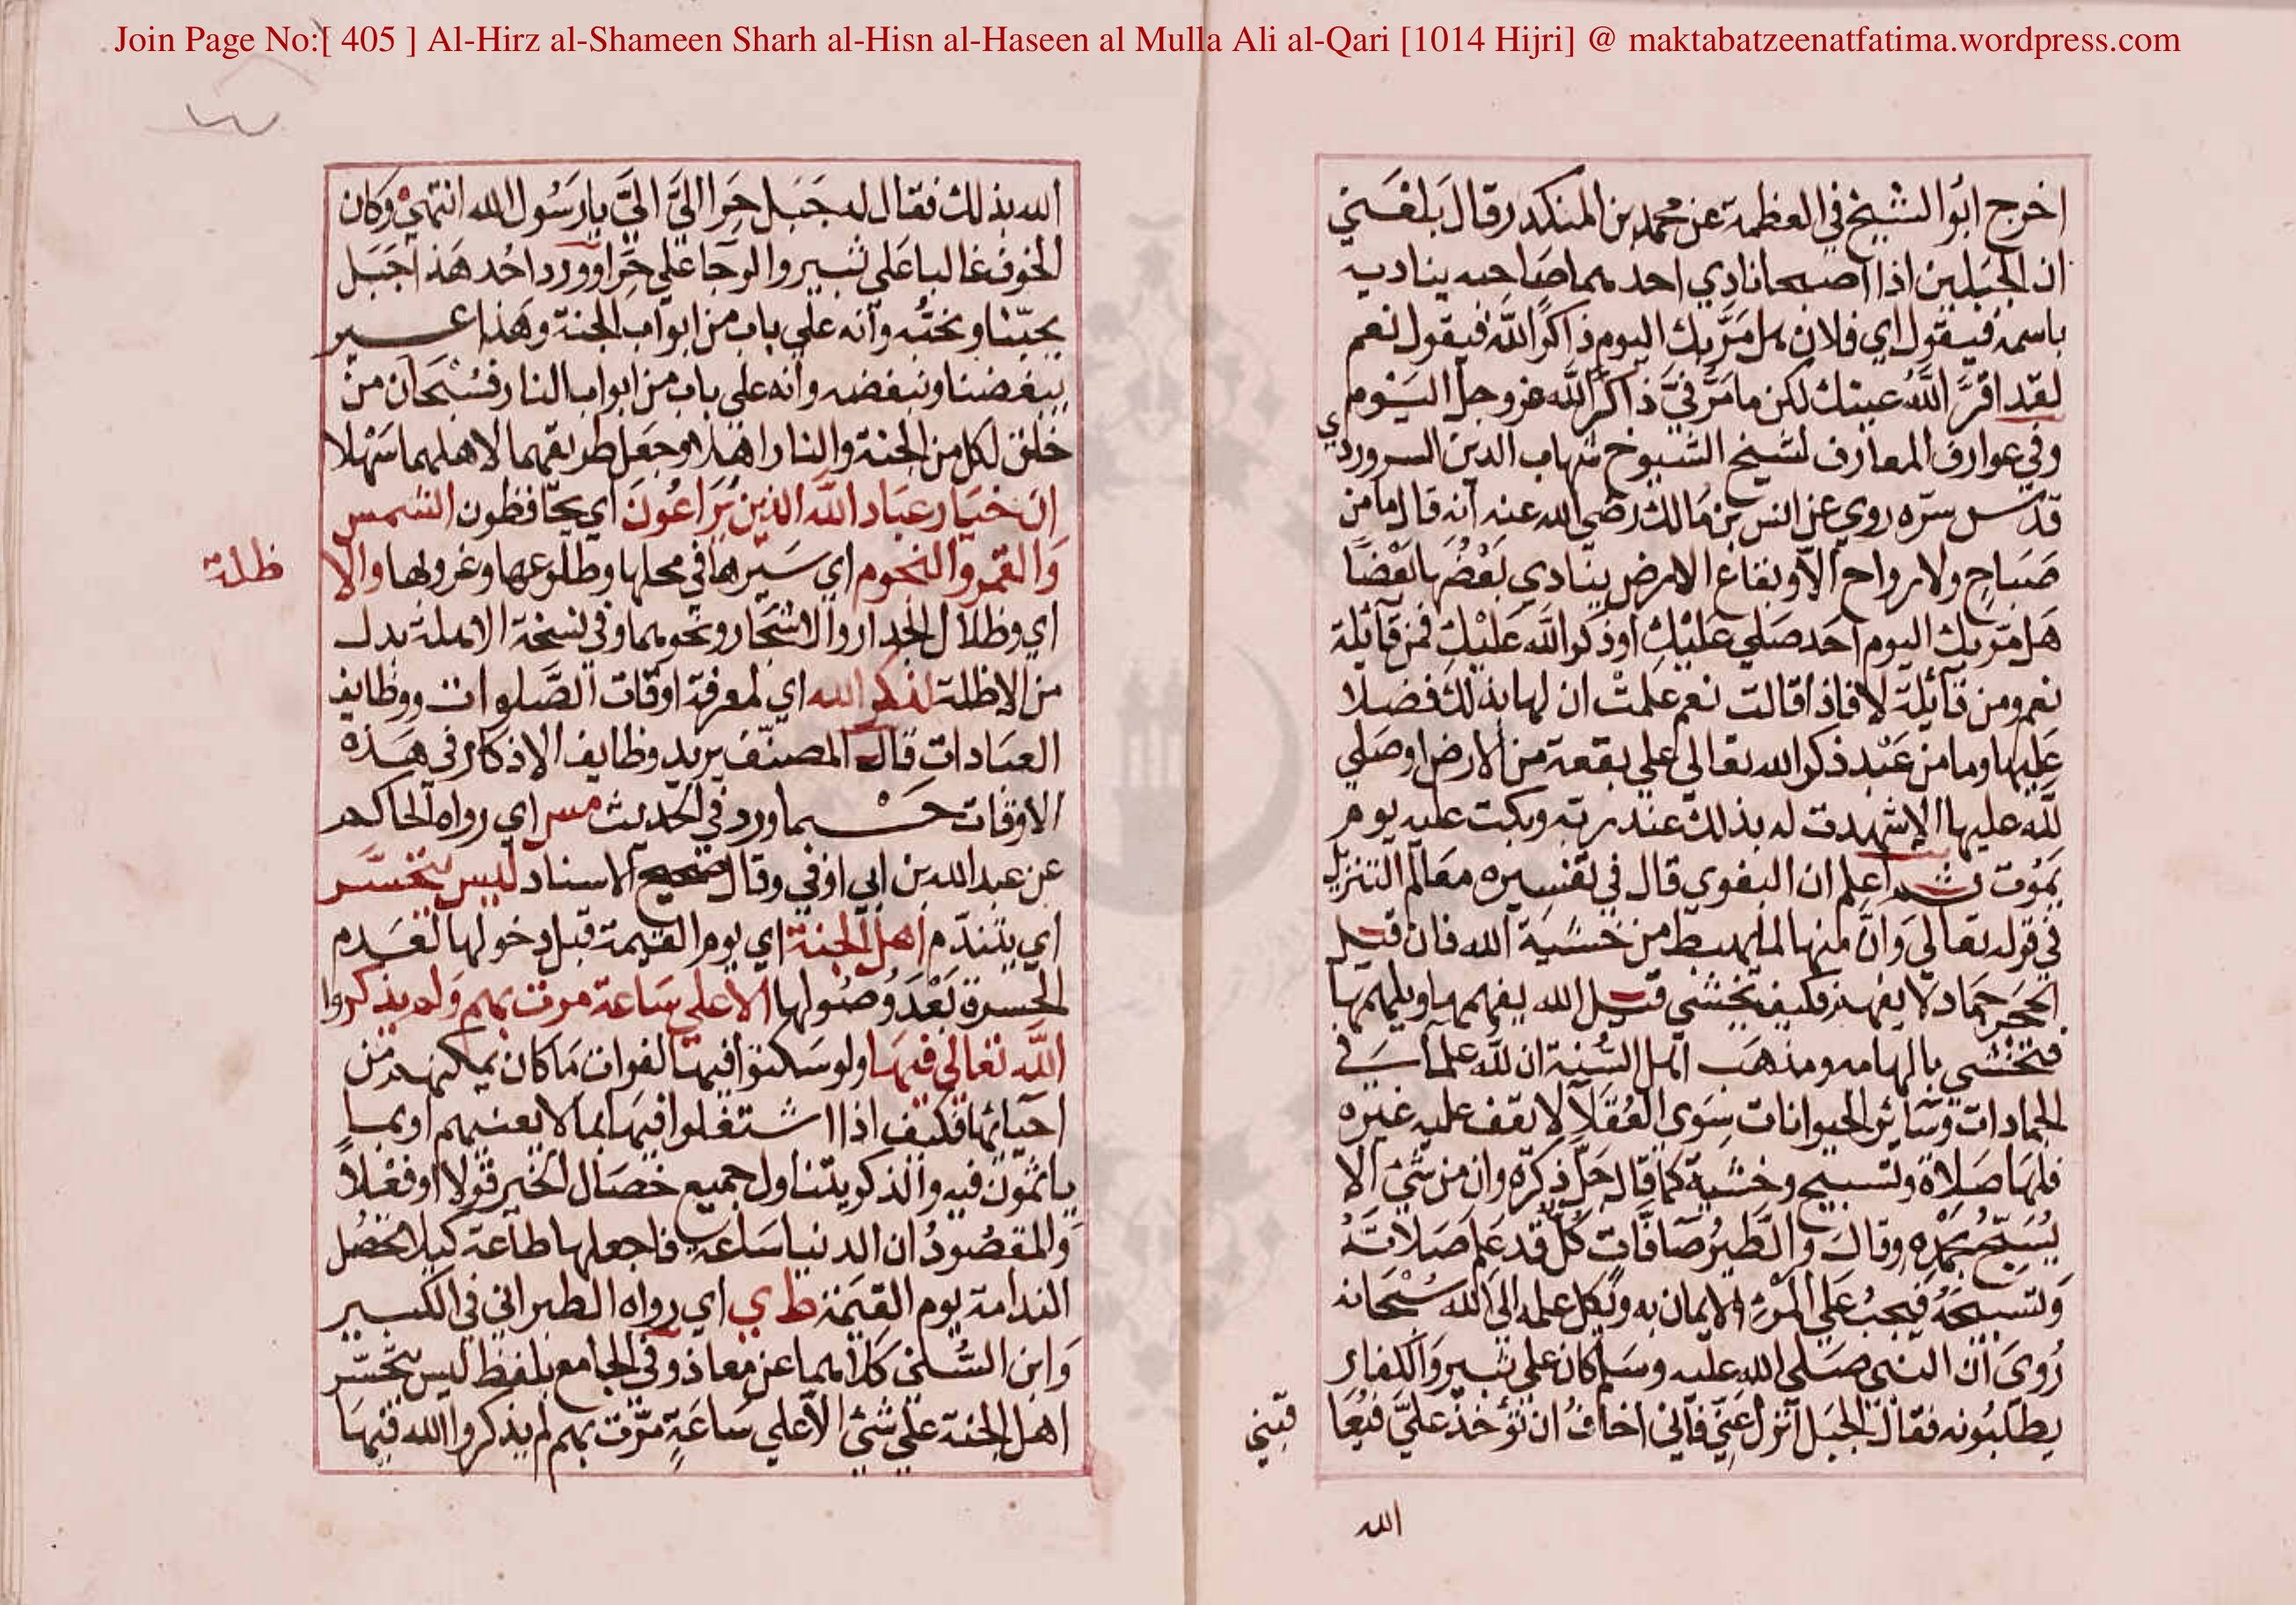 Join Page No:[ 405 ] Al-Hirz al-Shameen Sharh al-Hisn al-Haseen al Mulla Ali al-Qari [1014 Hijri] @ maktabatzeenatfatima.wordpress.com
اخرج ابو الشيخ في العظمة عن محمد بن المنكدر قال بلغني
ان الجبلين اذا اصبحا نادي احدهما صاحبه يناديه
باسمه فيقول اي فلان هل مَرَّ بك اليوم ذاكرًا لله فيقول نعم
لقد اقرَّ اللهُ عينك لكن ما مَرَّ فيَّ ذاكرًا لله عز وجل اليوم
وفي عوارف المعارف لشيخ الشيوخ شهاب الدين السروردي
قدس سره روي عن انس بن مالك رضي الله عنه انه قال ما من
صَبَاحٍ ولا رواح الا وبقاع الارض ينادي بَعْضُها بَعْضًا
هَل مَرّ بك اليوم احَد صَلي عَليْكِ اوذكر الله عَليْكِ فمن قآئلة
نعم ومن قآئلة لا فاذا قالت نعم علمتْ ان لها بذلك فضلا
عَليها وما من عَبْد ذكر الله تعالي علي بقعة من الارض او صَلي
لله عليها الا شهدت له بذلك عند ربه وبكت عليه يوم
يَمُوت ثم اعلم ان البغوي قال في تفسيره معالم التنزيل
في قوله تعالي وَانّ منها لما يهبط من خشية الله فان قيل
الحَجَر جَماد لا يفهم فكيف يخشي قيل الله يفهمها ويلهمها
فتخشي بالهامه ومذهب اهل السُّنة ان لله علما في
الجمادات وسَائر الحيوانات سِوَي العُقَلاَ لا يقف عليه غيره
فلهَا صَلاة وتسبيح وخشية كما قال جَلّ ذكره وان من شيْ الا
يُسَبّحُ بحَمْدِه وقال والطيرُ صَافَّاتٍ كلٌ قد عَلم صَلاتَهُ
وَتسبيحَهُ فيجبُ عَلي المَرْءِ الايمان به ويكل علمه الي الله سُبْحَانه
رُويَ ان النبي صَلي الله عليه وسَلم كان علي ثبير وَالكفار
يطلبُونه فقال الجبَل انزل عَنِّي فآني اخافُ ان تؤخذ عليَّ فيُعا
قبني
الله
الله بذلك فقال له جَبَل حِرَا اليَّ اليَّ يا رَسُول الله انتهيْ وكان
الخوف غالبا عَلي ثبير والرجا علي حِرَا وورد احُد هَذا جَبَل
يحبّنا ونحبُّه وانه علي باب من ابواب الجنة وهَذا عير
يبغضنا ونبغضه وانه علي باب من ابواب النار فسُبْحَان من
خلق لكل من الجنة والنار اهلا وجعل طريقهما لاهلهما سَهْلا
انَّ خيَار عبَاد الله الذين يُرَاعُونَ اي يحَافظون الشمس
وَالقمَر والنجوم اي سَيْرها في محلها وطلوعها وغروبها والا
ظلة
اي وظلال الجدار والاشجار ونحوهما وفي نسخة الاهلة بدل
من الاظلة لذكر الله اي لمعرفة اوقات الصَّلوات ووظايف
العبَادات قال المصنّف يريد وظايف الاذكار في هَذه
الاوقات حسْبما ورد في الحَديث مس اي رواه الحاكم
عن عبد الله بن ابي اوفي وقال صحيح الاسناد ليس يتحسّر
اي يتندّم اهل الجنة اي يوم القيمة قبل دخولها لعَدم
الحسرة بَعْدَ وُصُولها الا علي سَاعة مرت بهم وَلم يذكروا
الله تعالي فيهَا ولو سَكنوا فيها لفوات مَا كان يمكنهم من
احيائها فكيف اذا اشتغلوا فيهَا بما لا يعنيهم او بما
ياثمون فيه والذكر يتناول جميع خصَال الخير قولا او فعْلاً
وَالمقصُودُ ان الدنيا سَاعة فاجعلها طاعة كيلا تحصُل
الندامة يوم القيمَة ط ي اي رواه الطبراني في الكبير
وَابن السُّني كلاهما عن مُعاذ وفي الجامع بلفظ ليس يتحَسّر
اهل الجنة علي شيْ الا علي سَاعَةٍ مَرّت بهم لم يذكروا الله فيهَا